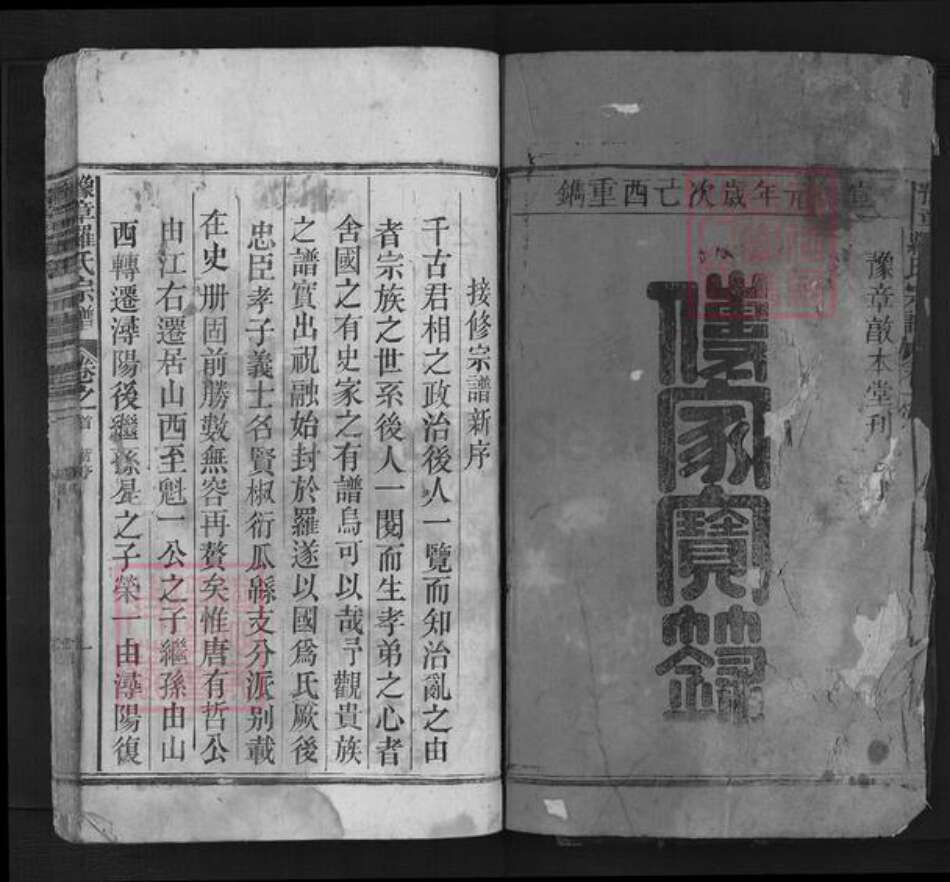 宣統元年歲次己酉重鐫
豫章敵本堂刊
傳家寶錄
接修宗譜新序
千古君相之政治後人一覽而知治亂之由
者宗族之世系後人一閱而生孝弟之心者
舍國之有史家之有譜烏可以哉予觀貴族
之譜實出祝融始封於羅遂以國爲氏厥後
忠臣孝子義士名賢椒衍瓜緜支分派别載
在史册固前勝數無容再贅矣惟唐有哲公
由江右遷居山西至魁一公之子繼孫由山
西轉遷潯陽後繼孫星之子榮一由潯陽復
豫章羅氏宗譜
卷之首
一